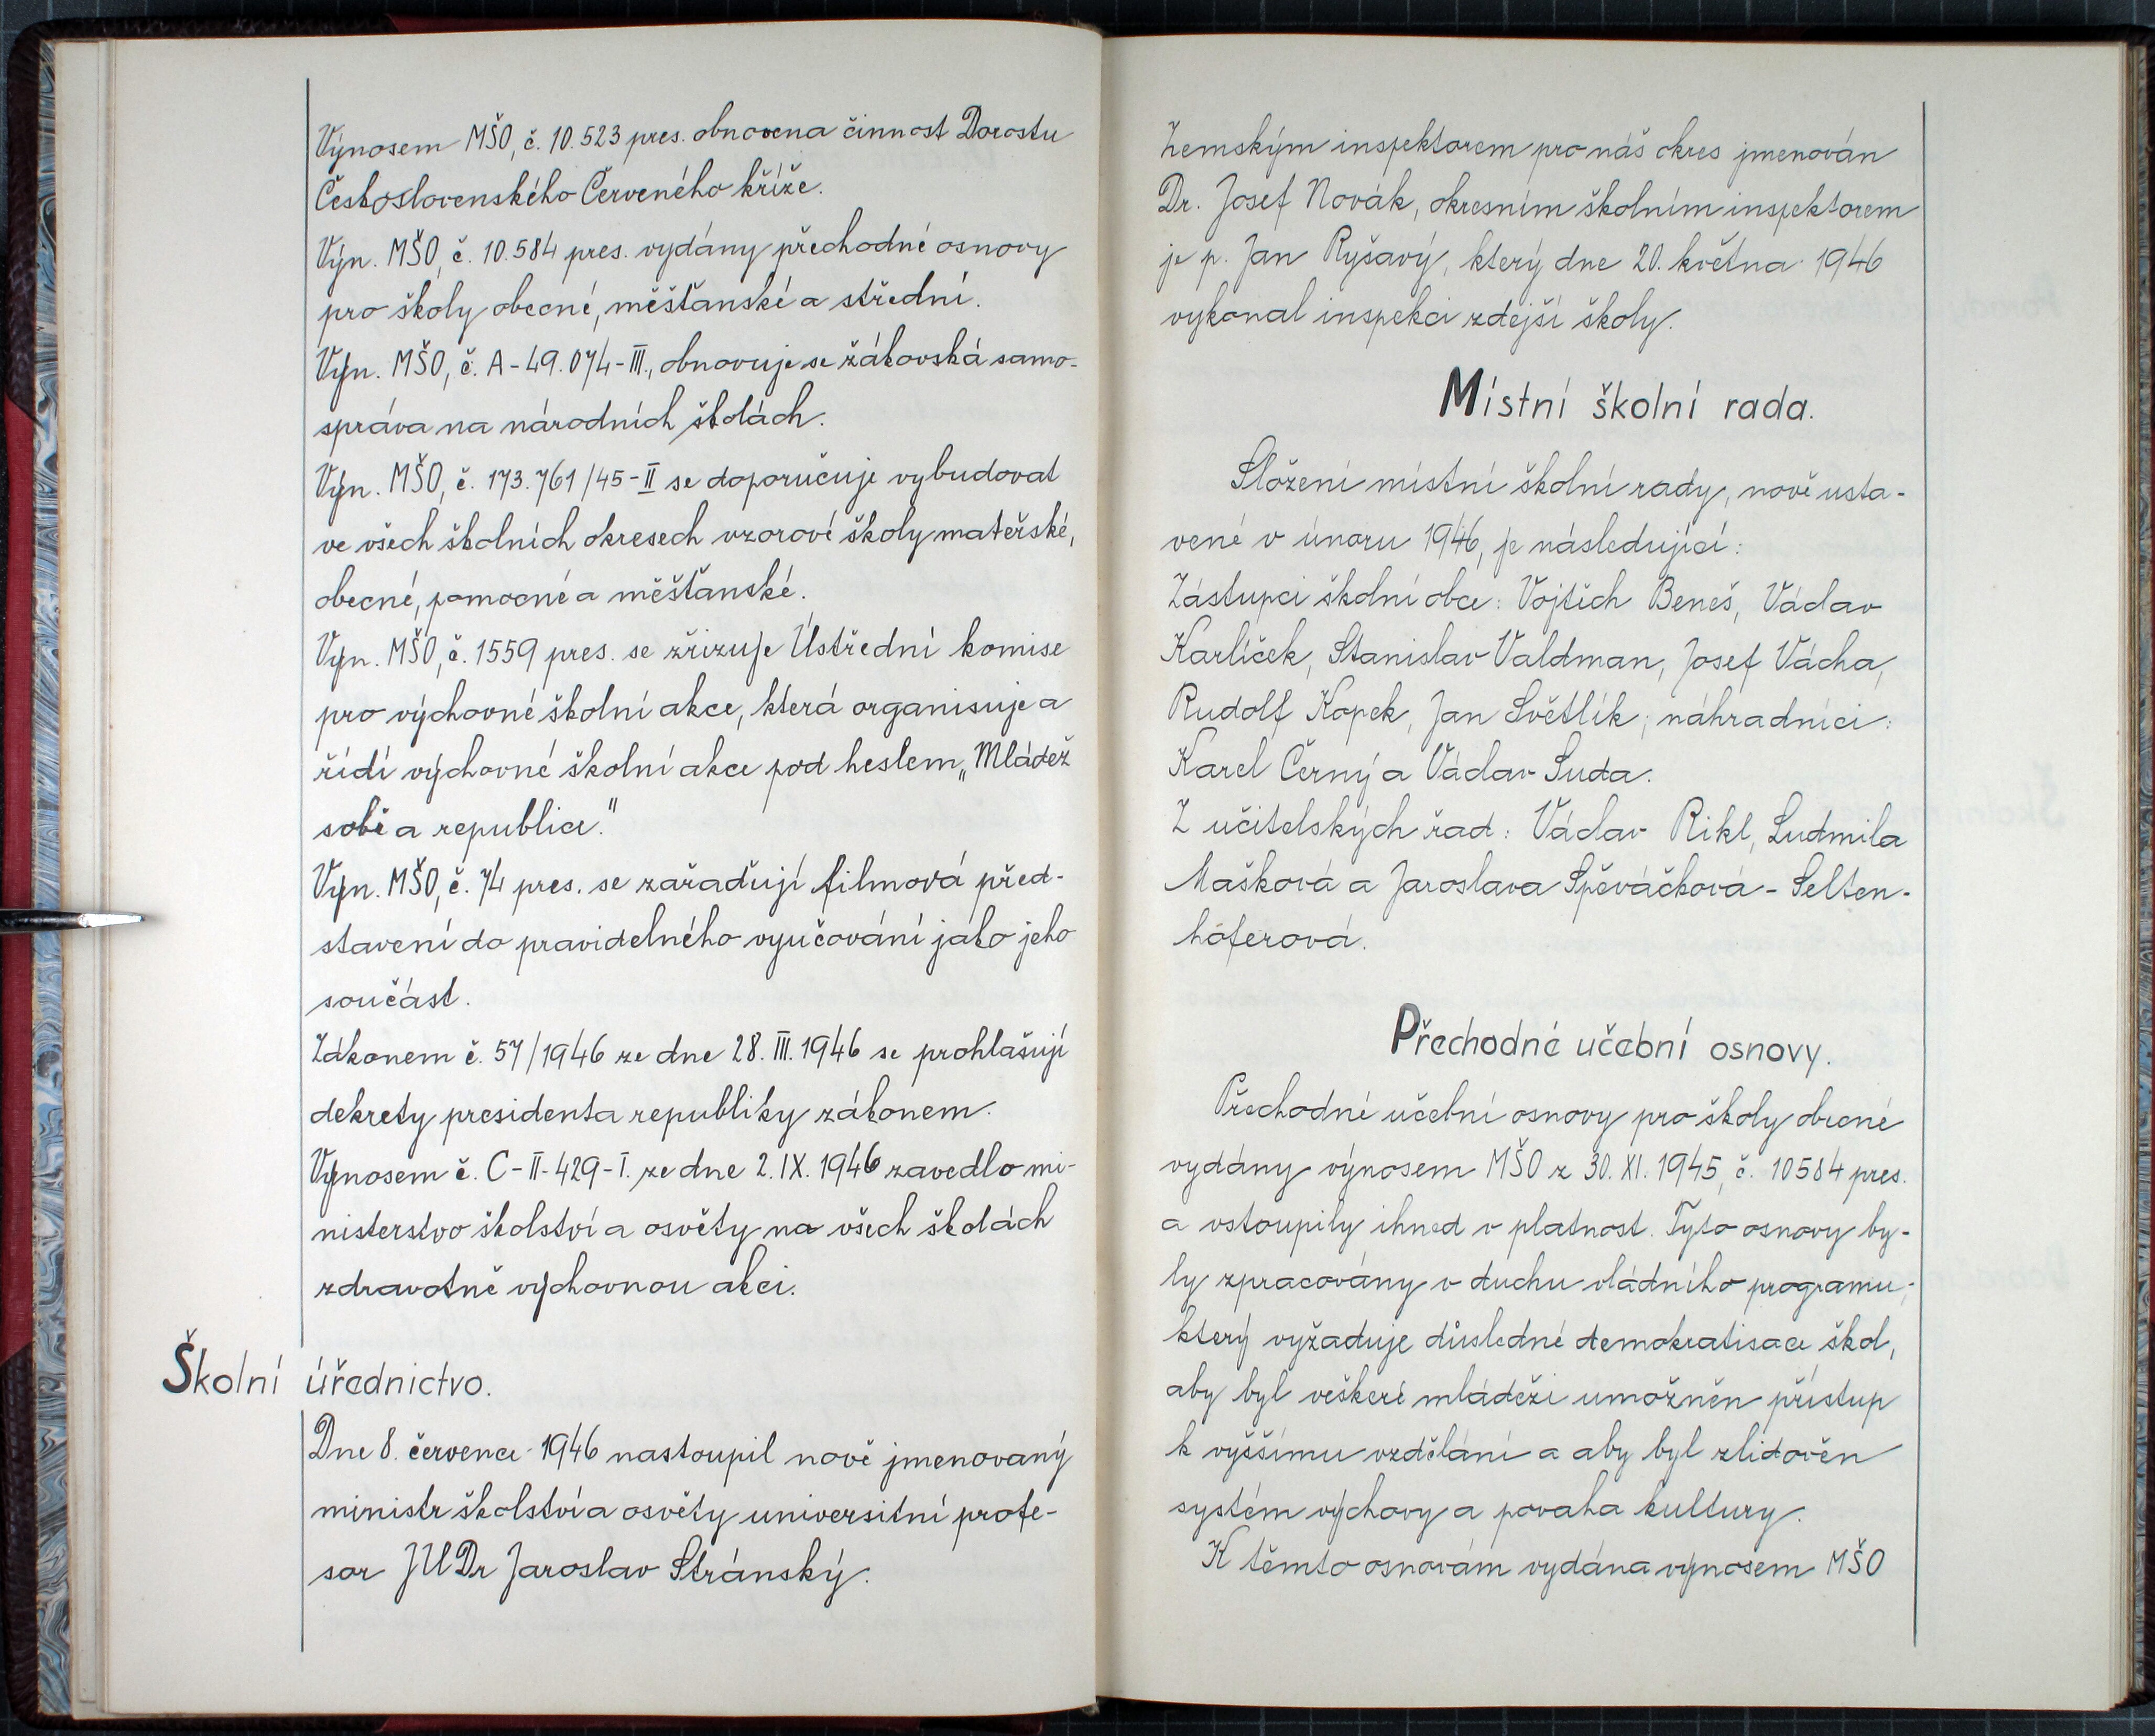 Výnosem MŠO, č. 10.523 pres. obnovena činnost Dorostu
Československého Červeného kříže.
Výn. MŠO, č. 10.584 pres. vydány přechodné osnovy
pro školy obecné, měšťanské a střední.
Výn. MŠO, č. A-49.074-III., obnovuje se žákovská samo-
správa na národních školách.
Výn. MŠO, č. 173.761/45-II se doporučuje vybudovat
ve všech školních okresech vzorové školy mateřské,
obecné, pomocné a měšťanské.
Výn. MŠO, č. 1559 pres. se zřizuje Ústřední komise
pro výchovné školní akce, která organisuje a
řídí výchovné školní akce pod heslem „Mládež
sobě a republice."
Výn. MŠO, č. 74 pres. se zařaďují filmová před-
stavení do pravidelného vyučování jako jeho
součást.
Zákonem č. 57/1946 ze dne 28. III. 1946 se prohlašují
dekrety presidenta republiky zákonem.
Výnosem č. C-II-429-I. ze dne 2. IX. 1946 zavedlo mi-
nisterstvo školství a osvěty na všech školách
zdravotně výchovnou akci.
Školní úřednictvo.
Dne 8. července 1946 nastoupil nově jmenovaný
ministr školství a osvěty universitní profe-
sor JUDr Jaroslav Stránský.
Zemským inspektorem pro náš okres jmenován
Dr. Josef Novák, okresním školním inspektorem
je p. Jan Ryšavý, který dne 20. května 1946
vykonal inspekci zdejší školy.
Místní školní rada.
Složení místní školní rady, nově usta-
vené v únoru 1946, je následující:
Zástupci školní obce: Vojtěch Beneš, Václav
Karlíček, Stanislav Valdman, Josef Vácha,
Rudolf Kopek, Jan Světlík; náhradníci:
Karel Černý a Václav Suda.
Z učitelských řad: Václav Rikl, Ludmila
Mašková a Jaroslava Spěváčková-Selten-
hoferová.
Přechodné učební osnovy.
Přechodné učební osnovy pro školy obecné
vydány výnosem MŠO z 30. XI. 1945, č. 10584 pres.
a vstoupily ihned v platnost. Tyto osnovy by-
ly zpracovány v duchu vládního programu,
který vyžaduje důsledné demokratisace škol,
aby byl veškeré mládeži umožněn přístup
k vyššímu vzdělání a aby byl zlidověn
systém výchovy a povaha kultury.
K těmto osnovám vydána výnosem MŠO